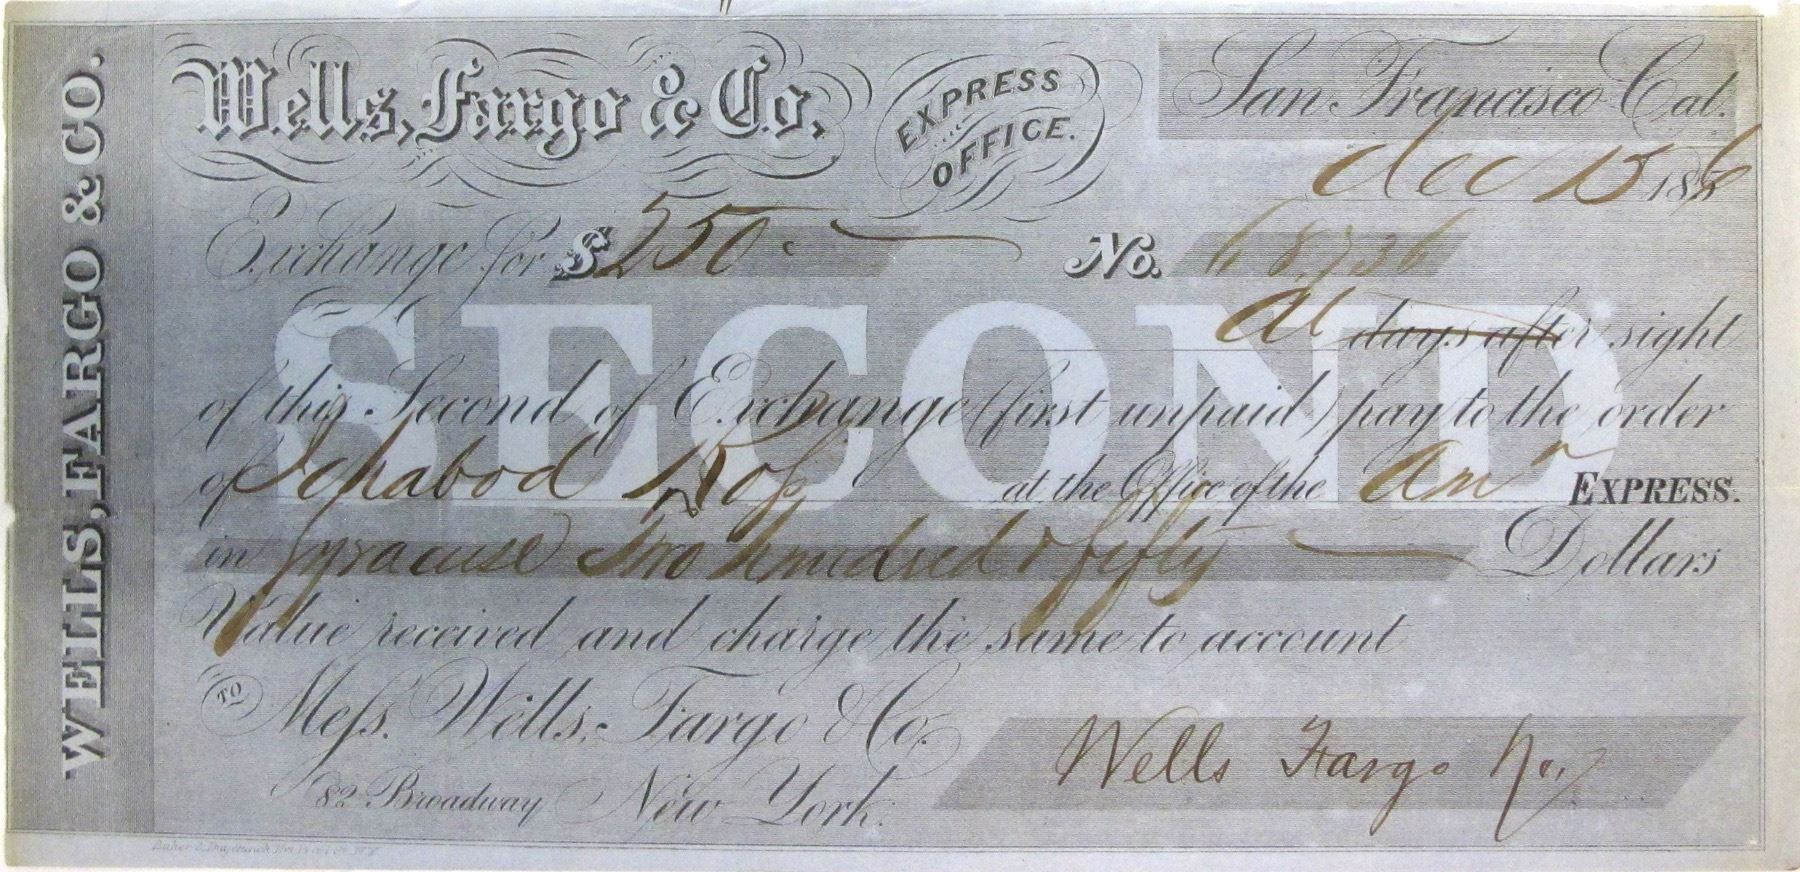 WELLS, FARGO & CO.
Wells, Fargo & Co. EXPRESS OFFICE. San Francisco Cal.
Dec 15 1856
Exchange for $ 250 - No. 68,736
SECOND
At days after sight
of this Second of Exchange (first unpaid) pay to the order
of Ichabod Ross at the Office of the Amn EXPRESS.
in Syracuse Two hundred & fifty Dollars
Value received and charge the same to account
TO Mess. Wells, Fargo & Co.
82 Broadway New York.
Wells Fargo & Co